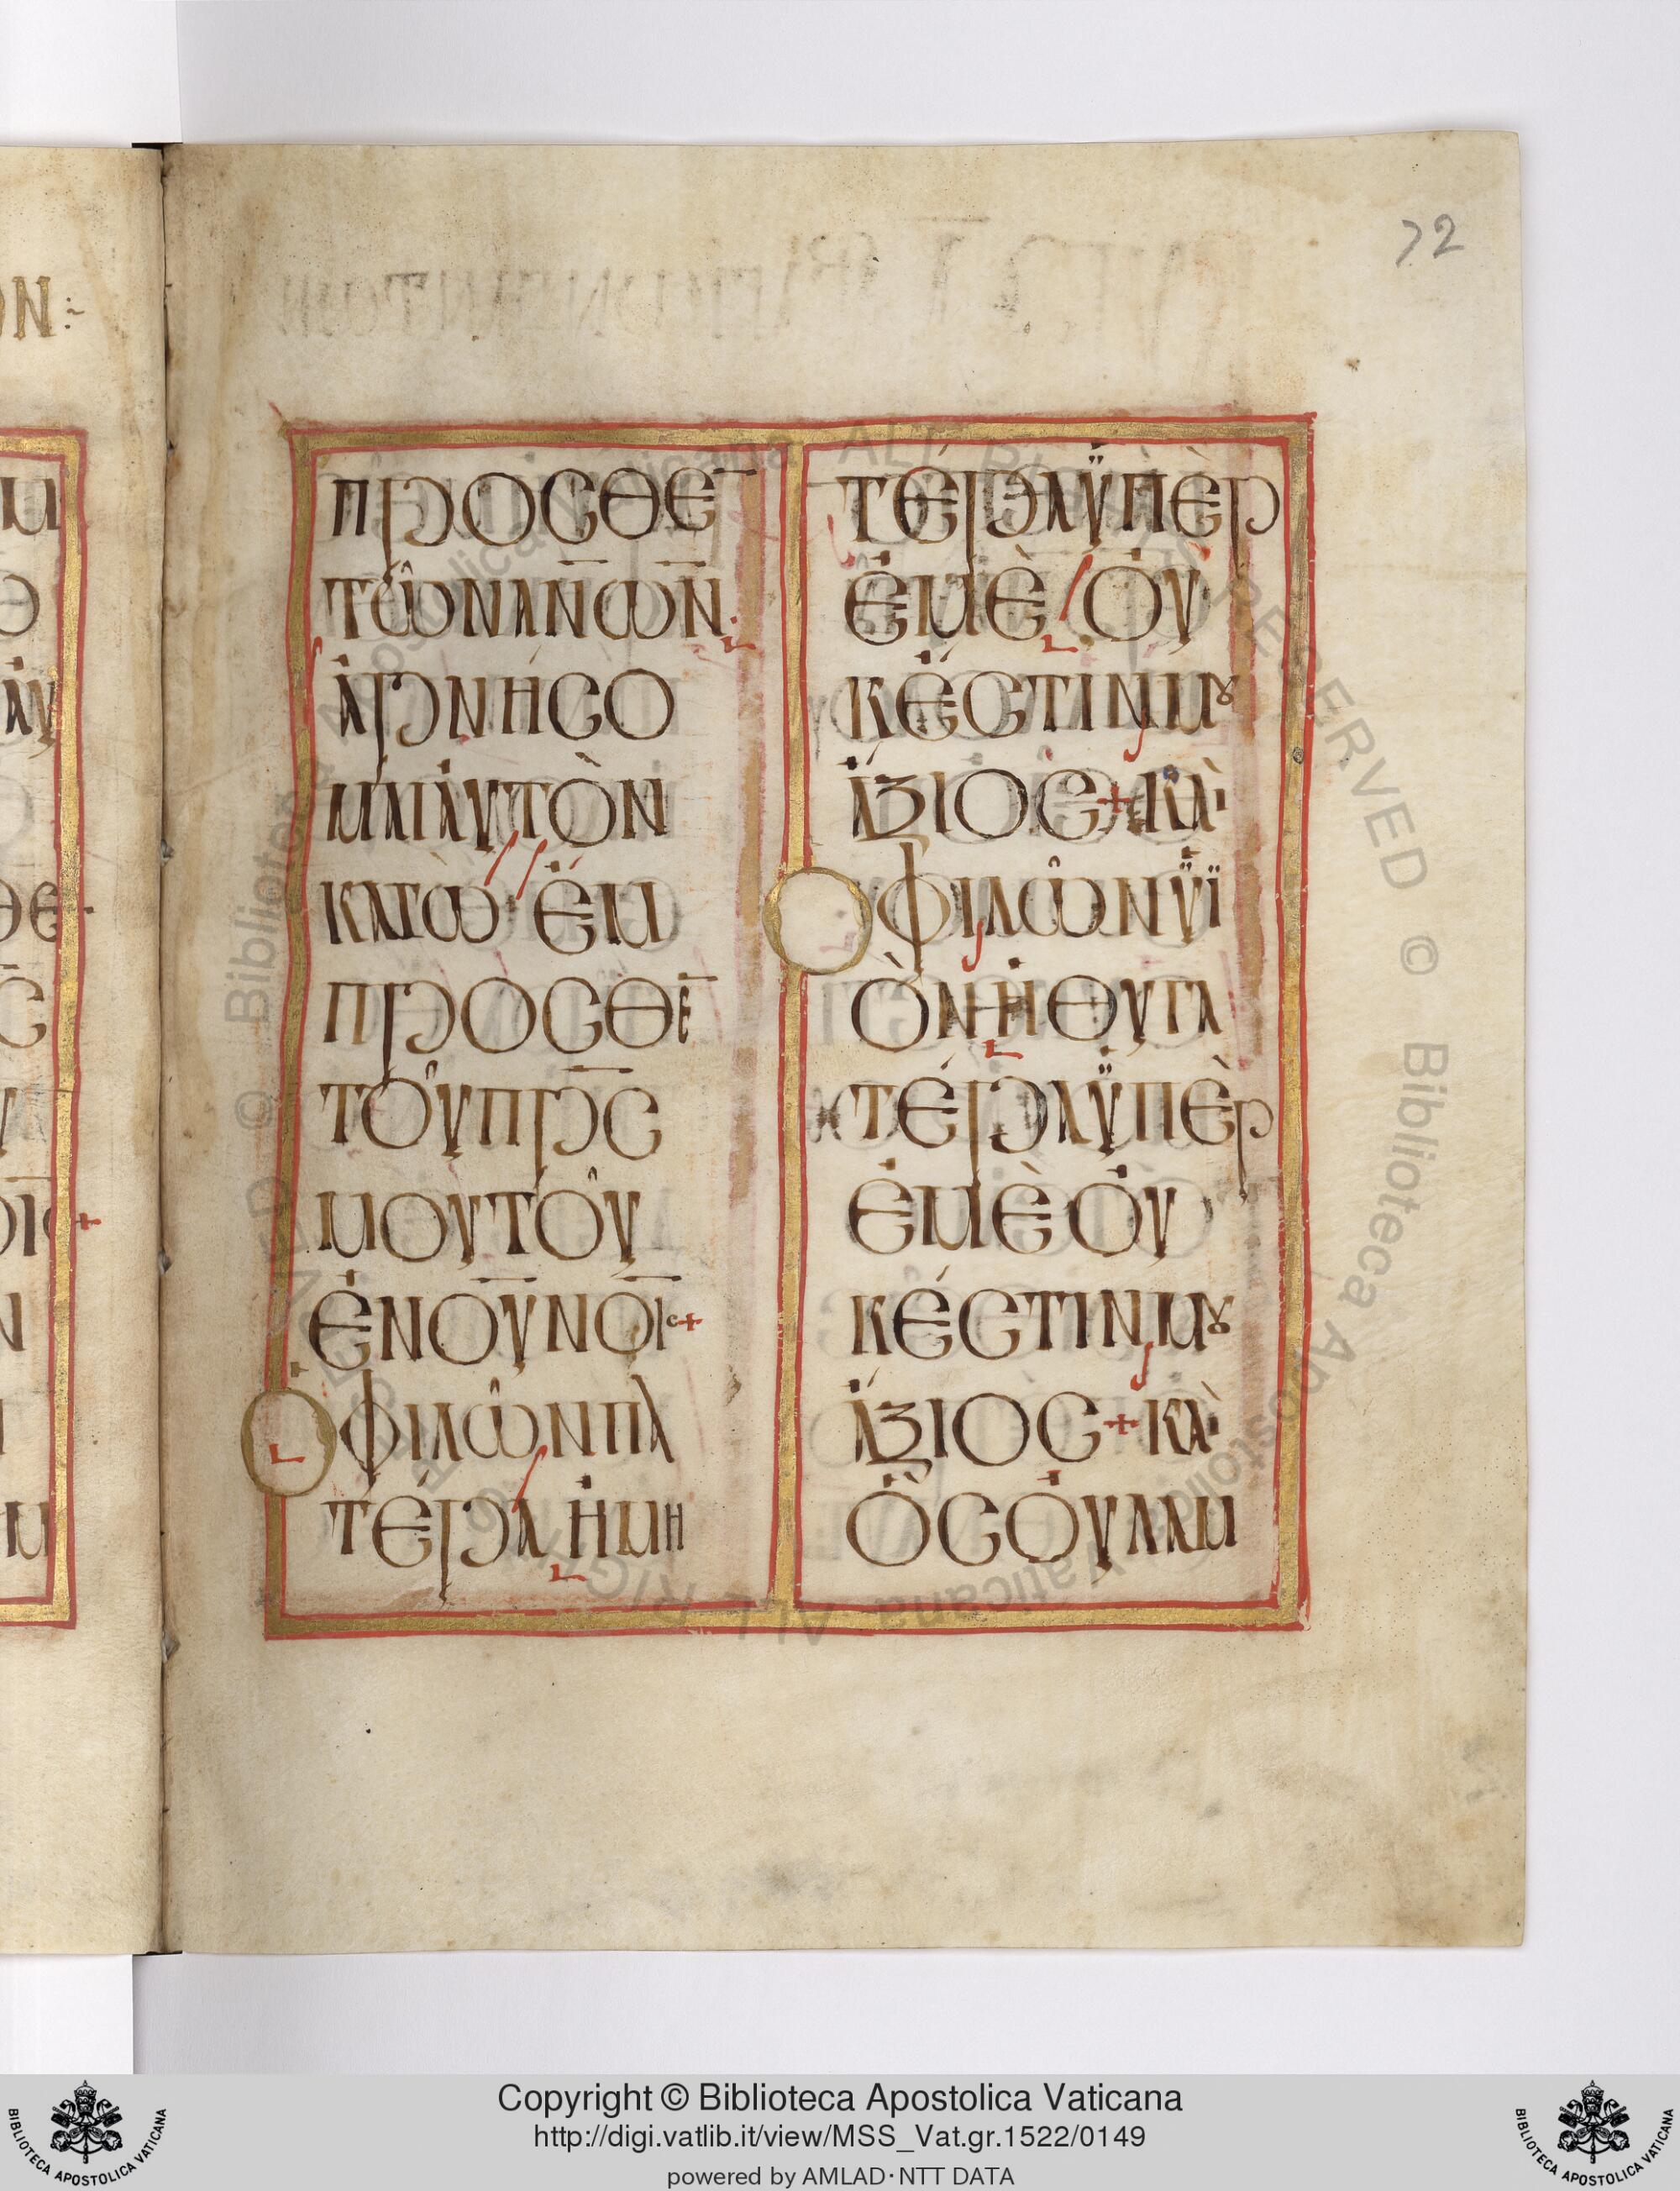 72
ΠΡΟCΘΕ̅
ΤῶΝΑΝ̅ωΝ̅·
ἀΡΝΗCΟ
ΜΑΙἀΥΤὸΝ
ΚΑΓὼ· ἔΜ
ΠΡΟCΘΕ̅
ΤΟῦΠΡ̅C
ΜΟΥΤΟῦ
ἐΝΟΥ̅ΝΟΙ̅C+
ὉΦΙΛῶΝΠΑ
ΤέΡΑ ἢΜΗ
ΤέΡΑὑΠὲΡ
ἐΜὲ ΟὐΥ
ΚἔCΤΙΝΜȣ
ἄΞΙΟC+ΚΑὶ
ὉΦΙΛῶΝΥἱ
ὸΝἢΘΥΓΑ
ΤέΡΑὑΠὲΡ
ἐΜὲΟὐ
ΚέCΤΙΝΜȣ
ἄΞΙΟC+ΚΑὶ
ὃCΟὐΛΑΜ
Ν:
Copyright © Biblioteca Apostolica Vaticana
http://digi.vatlib.it/view/MSS_Vat.gr.1522/0149
powered by AMLAD·NTT DATA
BIBLIOTECA APOSTOLICA VATICANA
BIBLIOTECA APOSTOLICA VATICANA